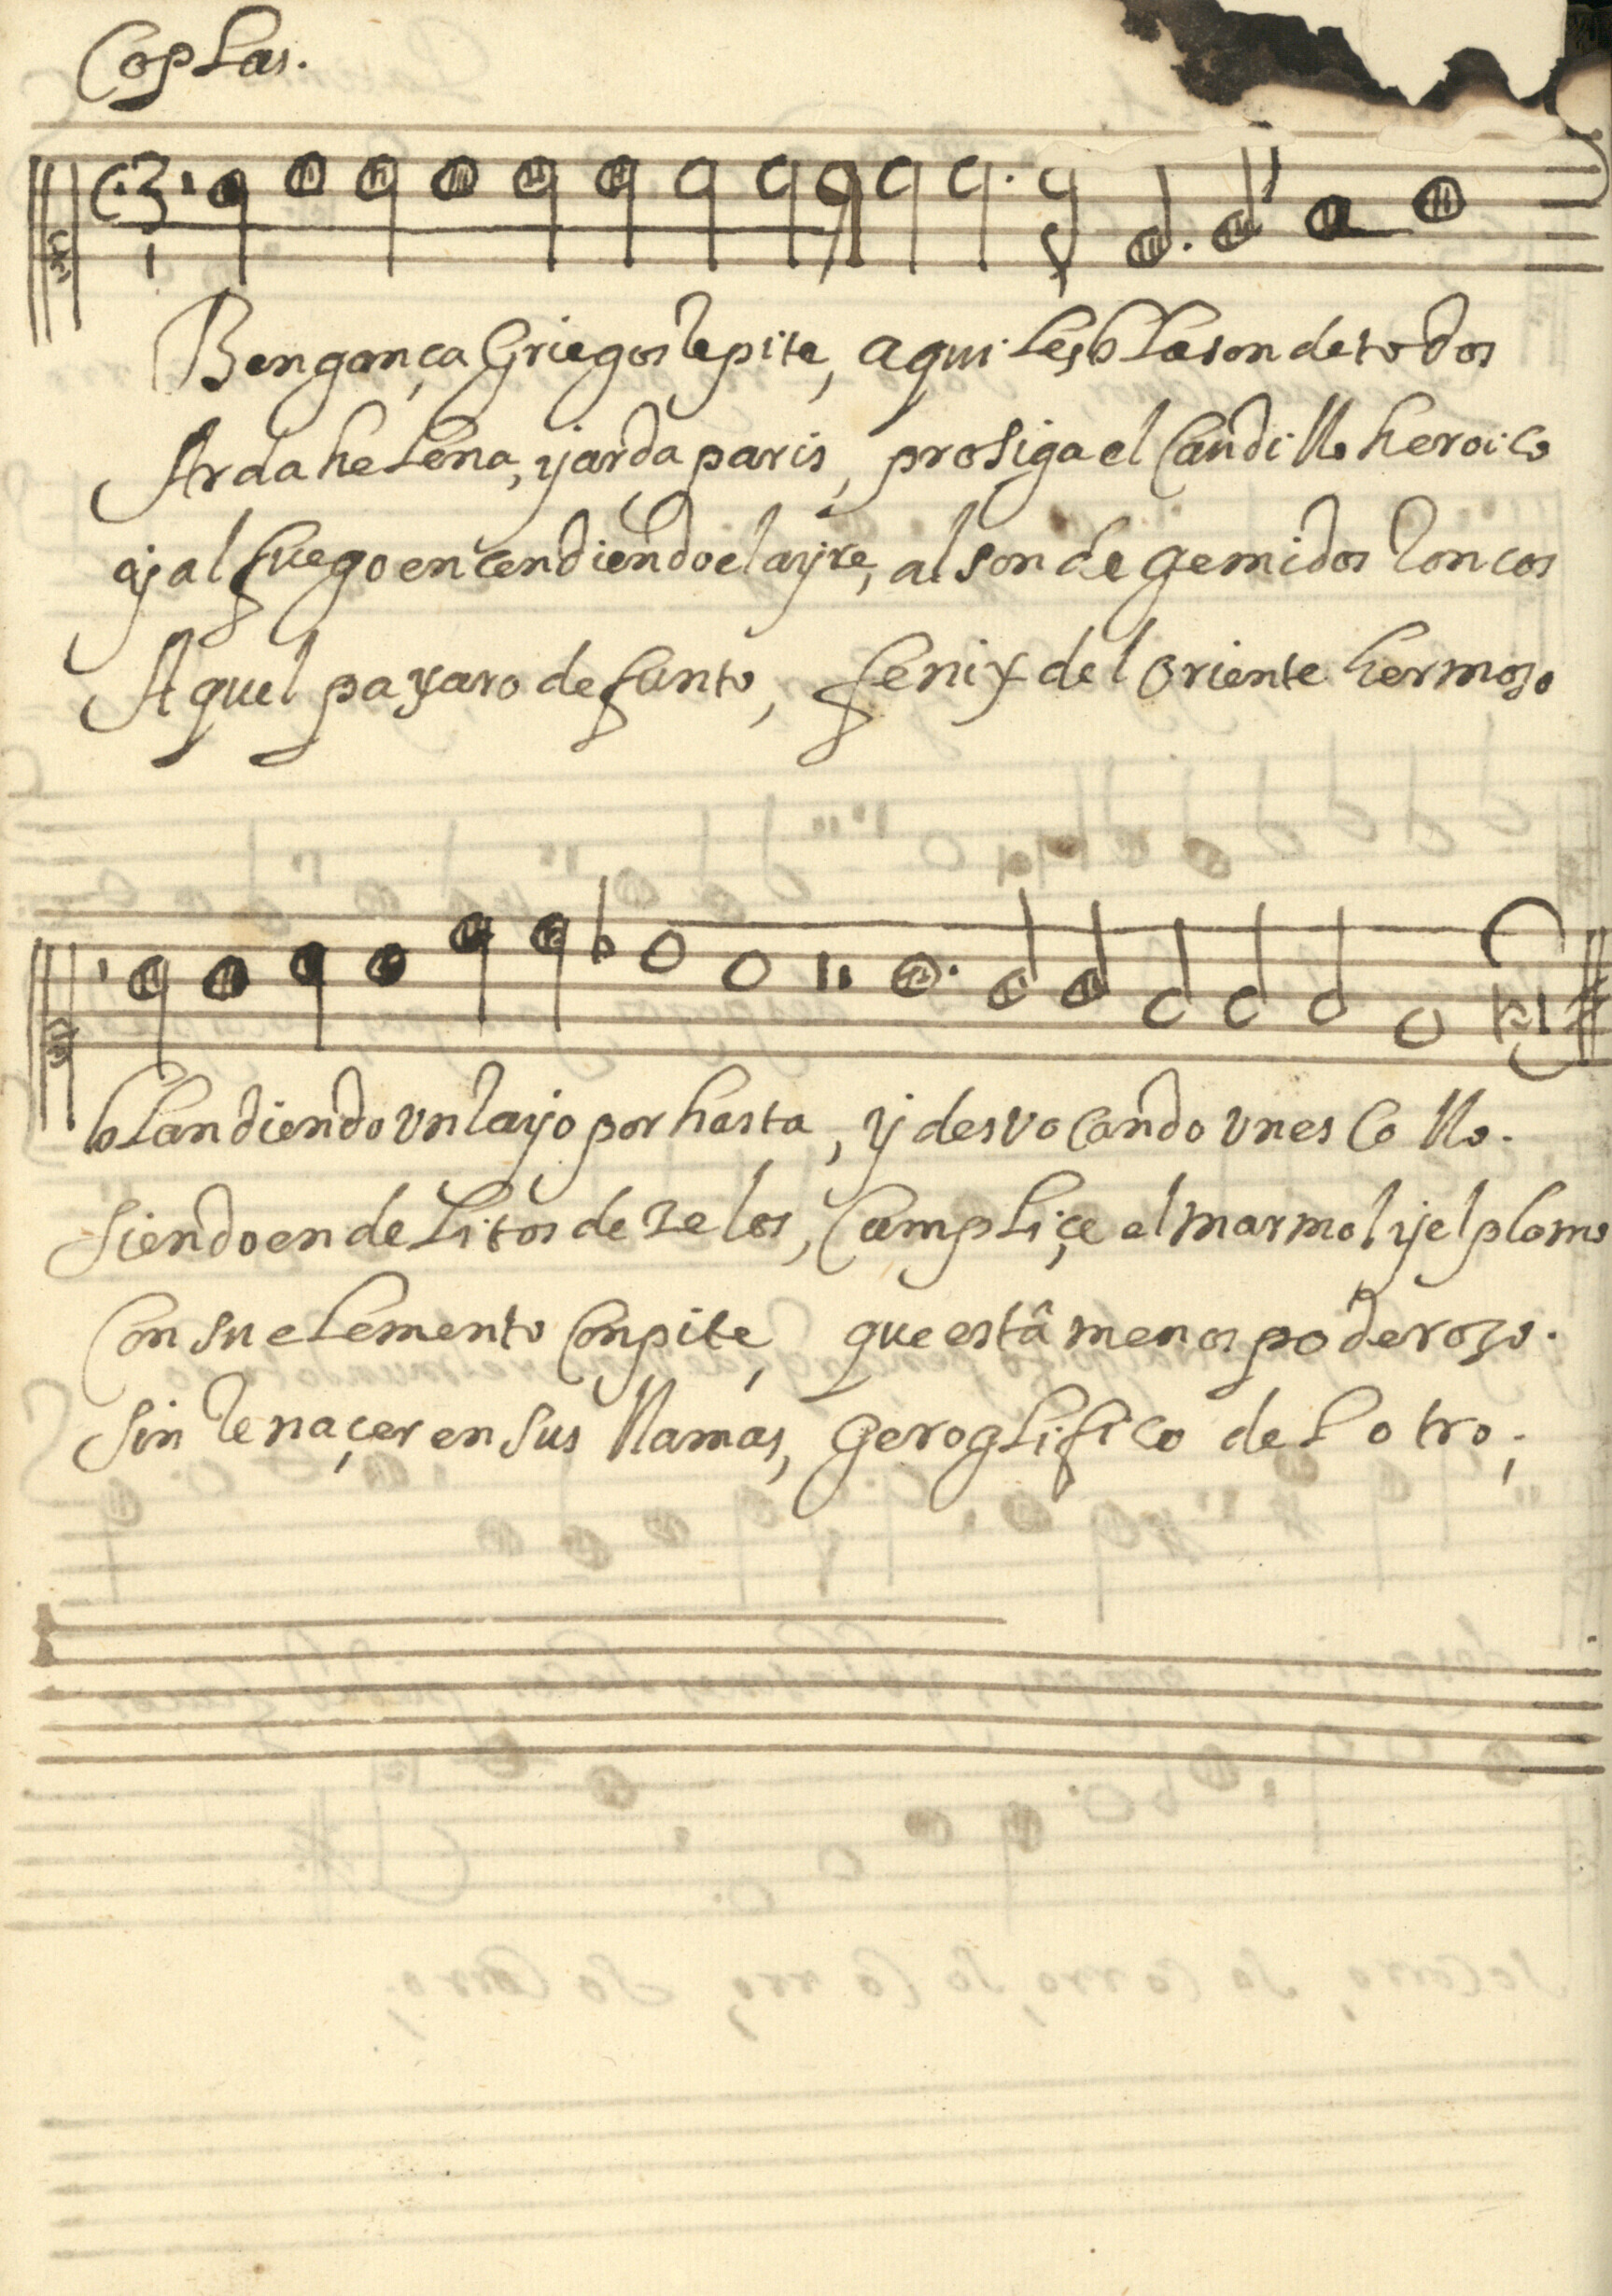 Coplas.
Bengança Griegos repite, aquiles blason de todos
Arda helena, y arda paris, prosiga el Caudillo heroico
y al fuego encendiendo el ayre, al son de gemidos roncos
Aquel paxaro defunto, fenix del oriente hermoso
blandiendo vn rayo por hasta, y desvocando vnescollo.
siendo en delitos de zelos, Complice el marmol y el plomo
Con su elemento Conpite, que está menos poderozo.
sin renaçer en sus llamas, geroglifico del otro;